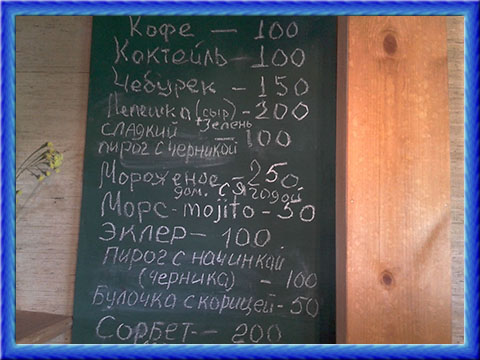 Кофе — 100
Коктейль — 100
Чебурек — 150
Лепешка (сыр + зелень) — 200
сладкий пирог с черникой — 100
Мороженое дом. с ягодой — 250
Морс-mojito - 50
Эклер — 100
пирог с начинкой
(черника) — 100
Булочка с корицей - 50
Сорбет — 200